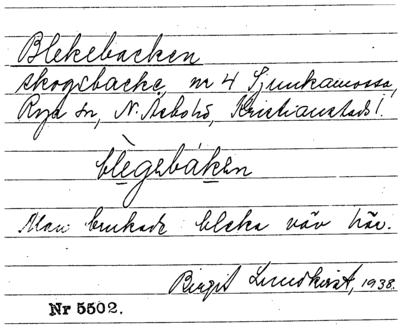 Blekebacken
skogsbacke, nr 4 Ljunkamossa,
Rya sn, N. Åsbo hd, Kristianstads l.
blègebáken
Man brukade bleka väv här.
Birgit Lundkvist, 1938.
Nr 5502.